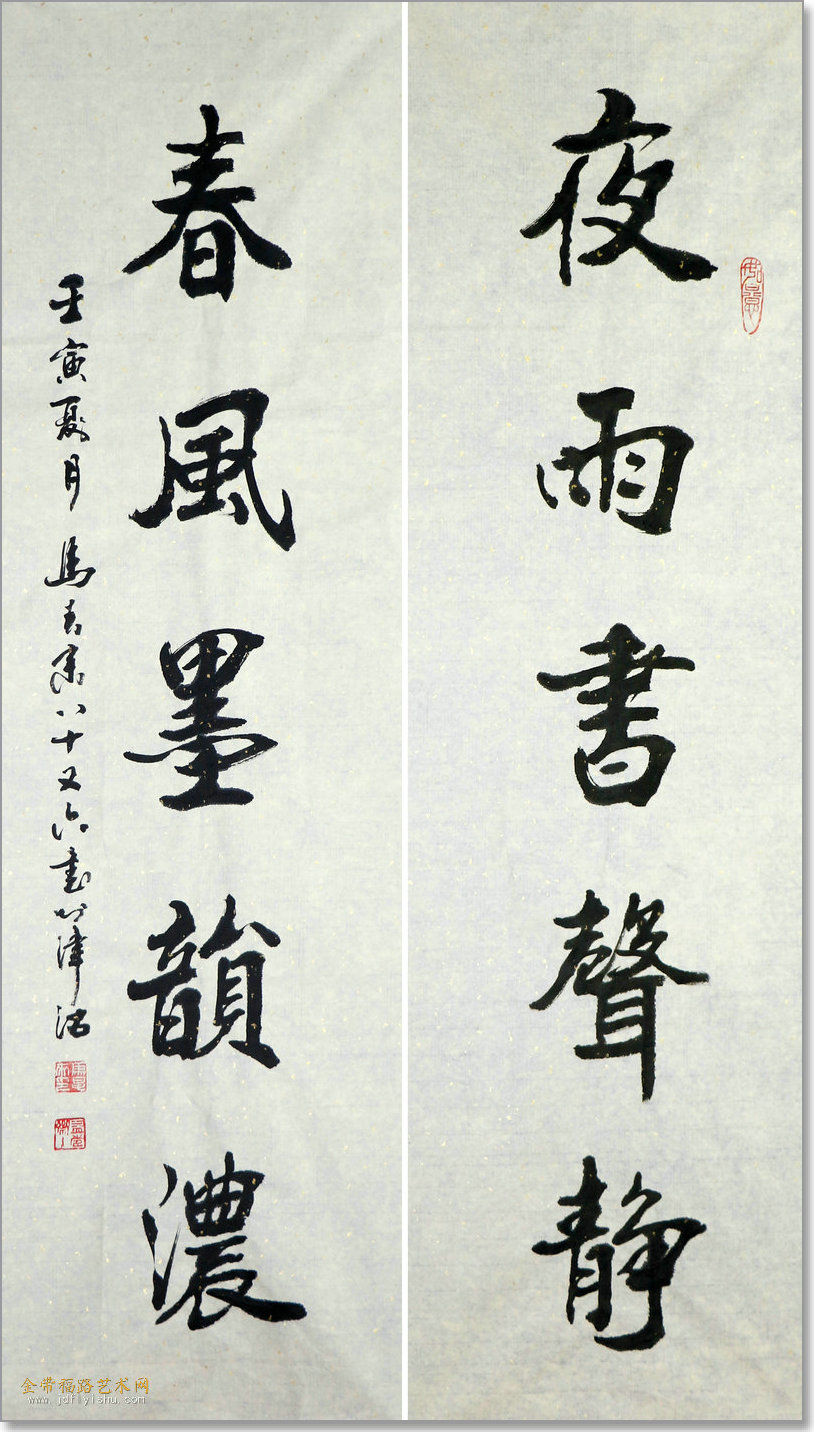 夜雨書聲静
春風墨韻濃
壬寅夏月 馬 八十又六書於津沽
金带福路艺术网
www.jdflyishu.com